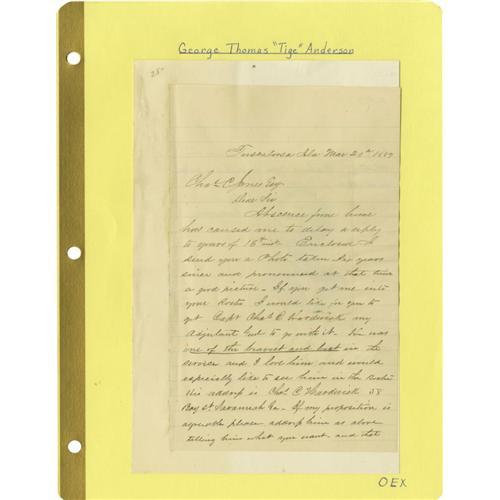 George Thomas "Tige" Anderson
Tuscaloosa Ala Mar 20th 1889
Chas C Jones Esq
Dear Sir
Absence from home
has caused me to delay a reply
to yours of 15th inst. Enclosed I
send you a Photo taken six years
since and pronounced at that time
a good picture - If you put me into
your Roster I would like for you to
get Capt Chas C Hardwick my
Adjutant Genl to go with it. He was
one of the bravest and best in the
service and I love him and would
especially like to see him in the Roster
His address is Chas C Hardwick 58
Bay St Savannah Ga. If my proposition is
agreeable please address him as above
telling him what you want and that
OEX